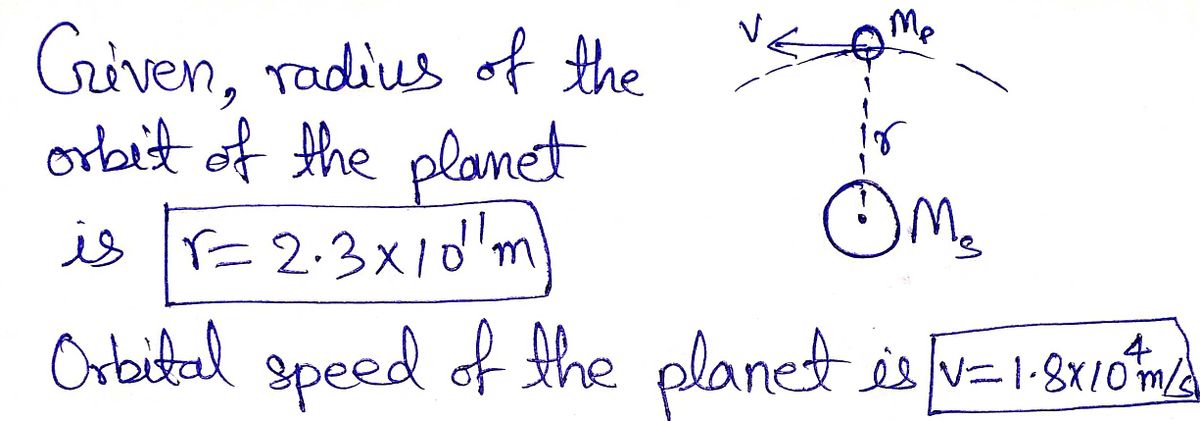 Given, radius of the
orbit of the planet
is r= 2.3x10¹¹m
Orbital speed of the planet is v=1.8x10⁴m/s
v
Mp
r
Ms